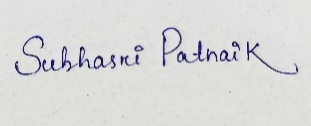 Subhasri Patnaik